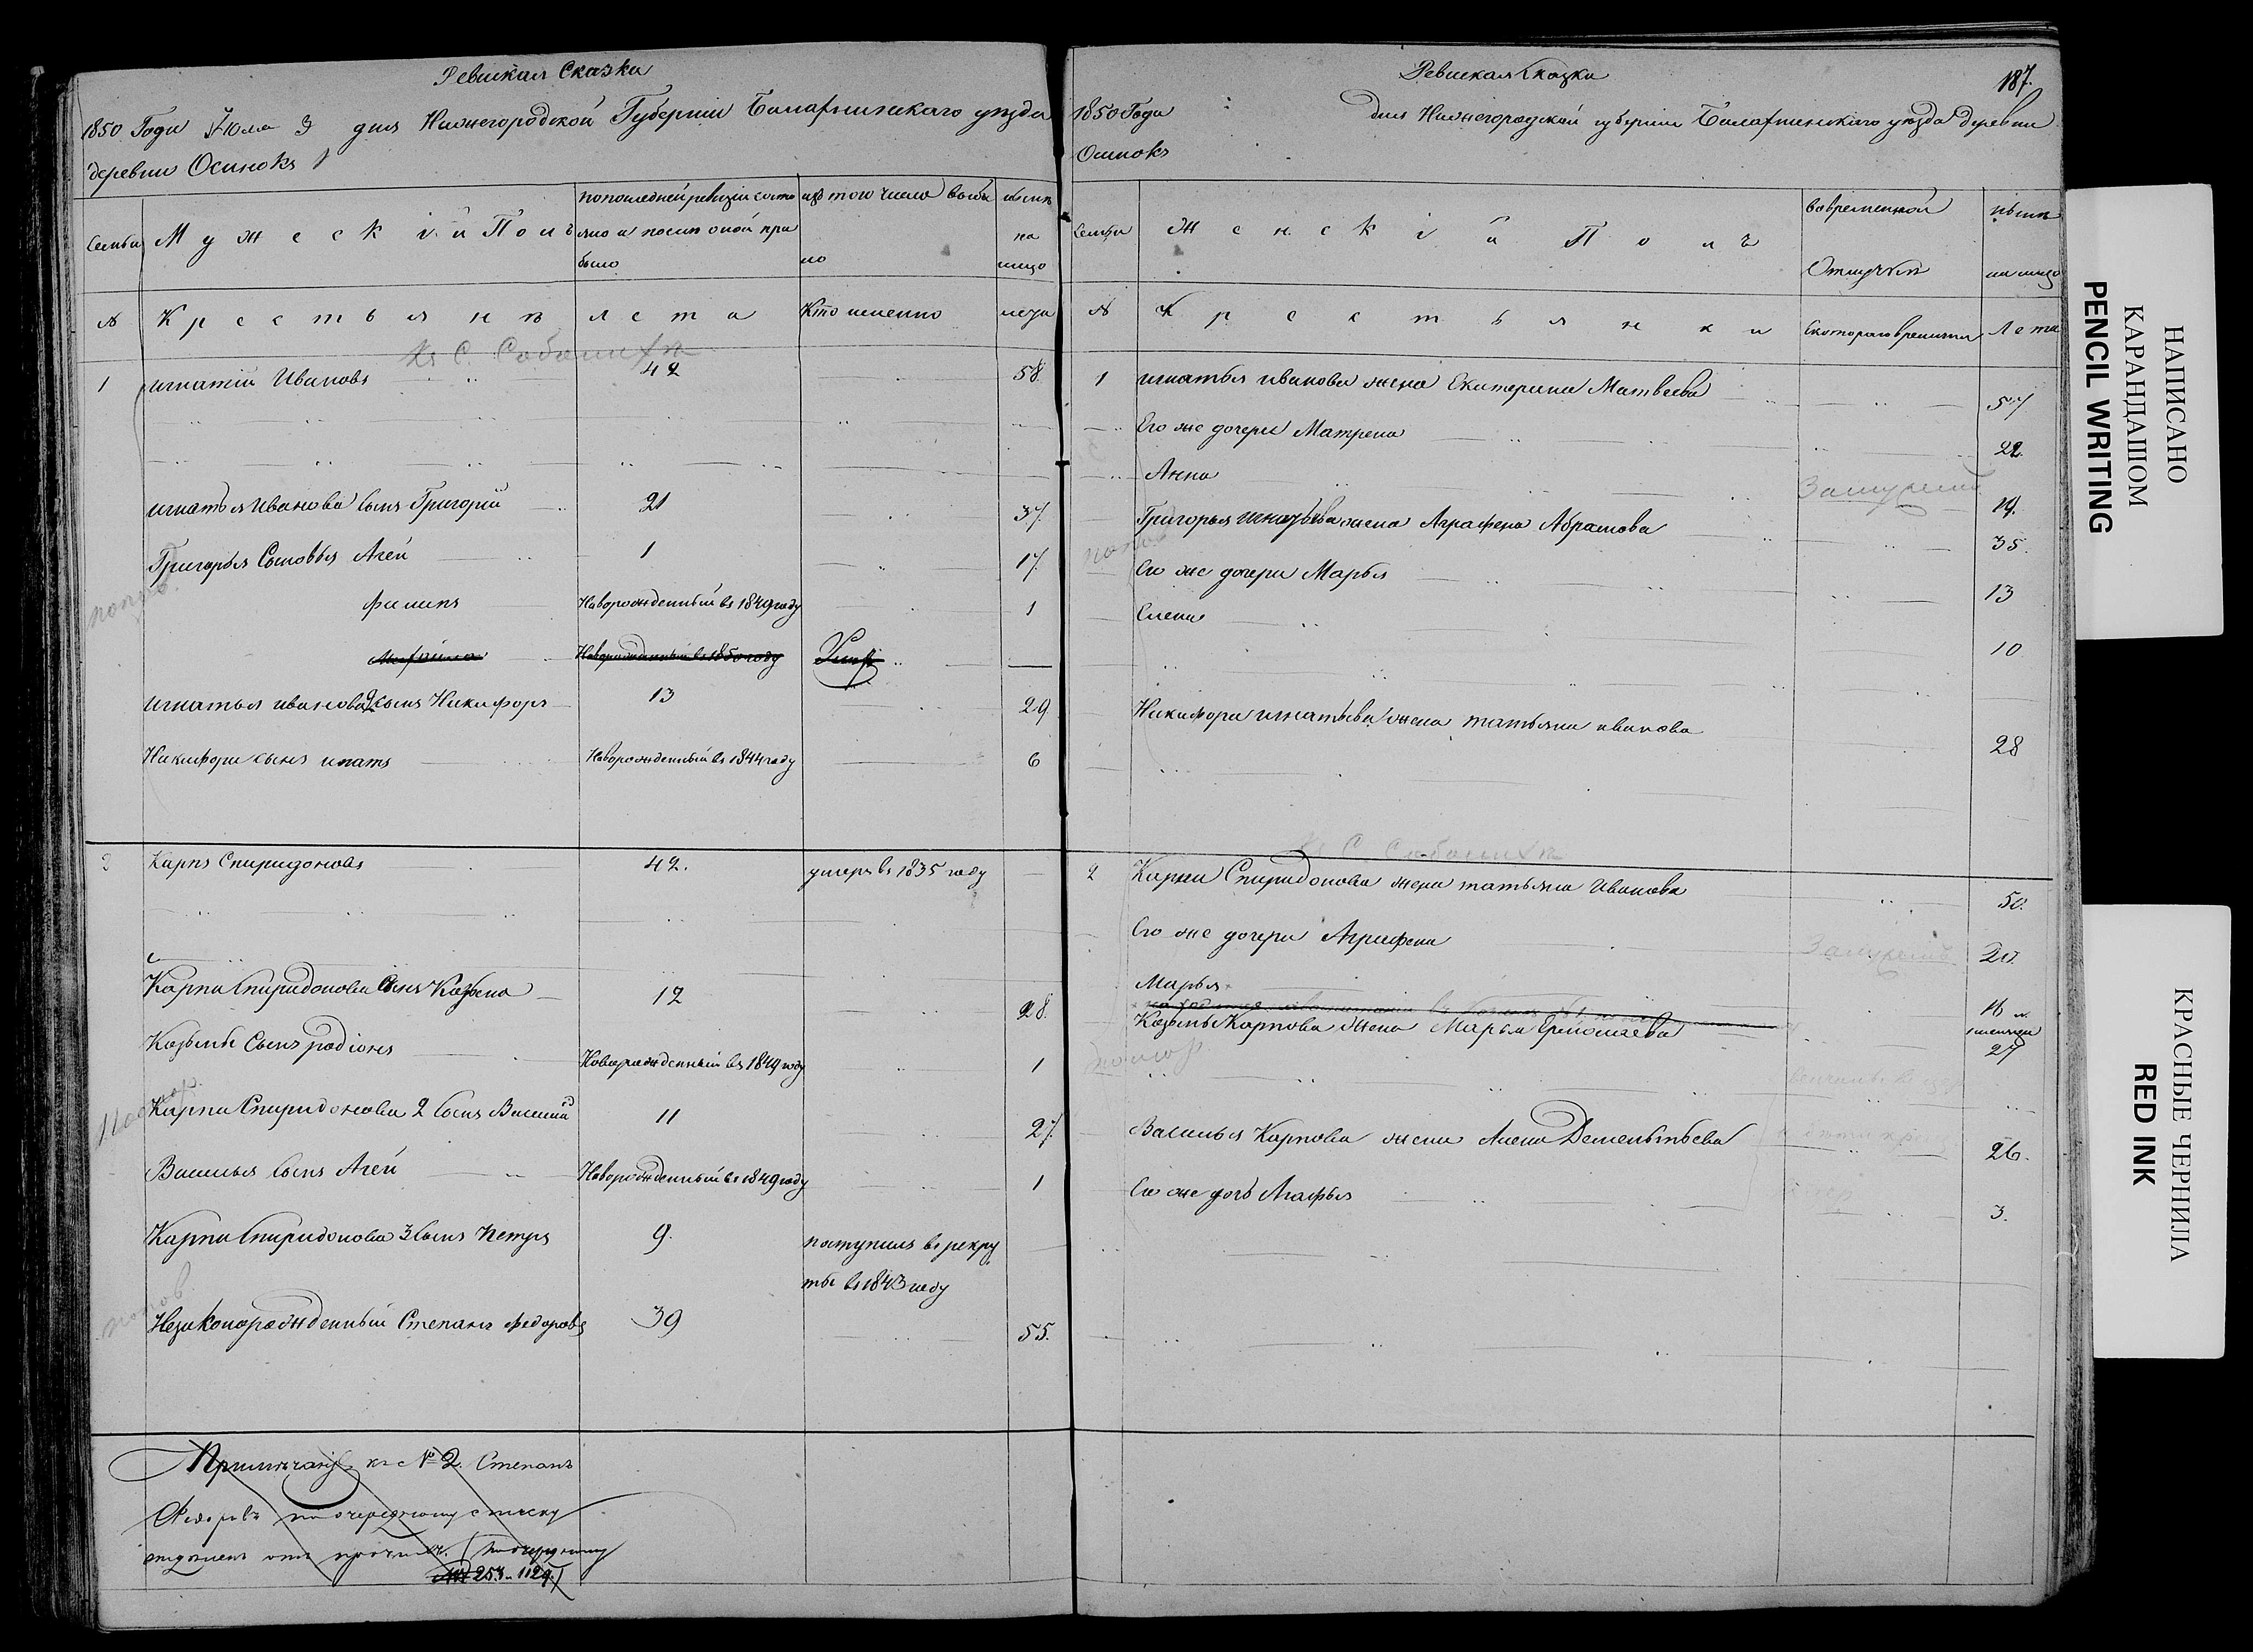 Ревиская Сказка
1850 Года Июля 3 дня Нижегородской Губернии Балахнинскаго уѣзда
деревни Осинокъ
Семьи
Мужескій Полъ
по последней ревизіи состо
яло и послѣ оной при
было
изъ того числа выбы
ло
нынѣ
на
лицо
№
Крестьянъ
лета
Кто именно
лета
къ С. Соболихѣ
1 игнатій Ивановъ 42 58
игнатья Иванова сынъ Григорій 21 37
Григорья Сыновья Агей 1 17
филипъ Новорожденный въ 1849 году 1
Новорожденный въ 1850 году
игнатья иванова 2 сынъ Никифоръ 13 29
Никифора сынъ ипатъ Новорожденный въ 1844 году 6
2 Карпъ Спиридоновъ 42. умеръ въ 1835 году
Карпа Спиридонова сынъ Козьма 12 28
Козьмы Сынъ родіонъ Новорожденный въ 1849 году 1
Карпа Спиридонова 2 сынъ Василій 11 27
Василья сынъ Агей Новорожденный въ 1849 году 1
Карпа Спиридонова 3 сынъ петръ 9. поступилъ въ рекру
ты въ 1843 году
Незаконорожденный Степанъ федоровъ 39 55.
Примѣчаніе къ № 2. Степанъ
Федоровъ по очередному списку
отдѣленъ отъ прочихъ.
253
Ревиская Сказка
187.
1850 Года дня Нижегородской губерніи Балахнинскаго уѣзда деревни
Осинокъ
Семьи
Женскій Полъ
Вовременной
Отлучкѣ
нынѣ
на лицо
№
Крестьянки
Скотораго времяни
Лета
1 игнатья иванова жена Екатерина Матвеева 57
Его же дочери Матрена 22
Анна Замужемъ 19.
Григорья игнатьева жена Аграфена Абрамова 35.
Его же дочери Марья 13
Елена 10
Никифора игнатьева жена татьяна иванова 28
къ С. Соболихѣ
2 Карпа Спиридонова жена татьяна Иванова 50.
Его же дочери Аграфена Замужемъ 20.
Марья 16
Козьмы Карпова жена Марья Ермолаева 27
Василья Карпова жена Алена Дементьева 26.
Его же дочь Агафья 3.
НАПИСАНО
КАРАНДАШОМ
PENCIL WRITING
КРАСНЫЕ ЧЕРНИЛА
RED INK